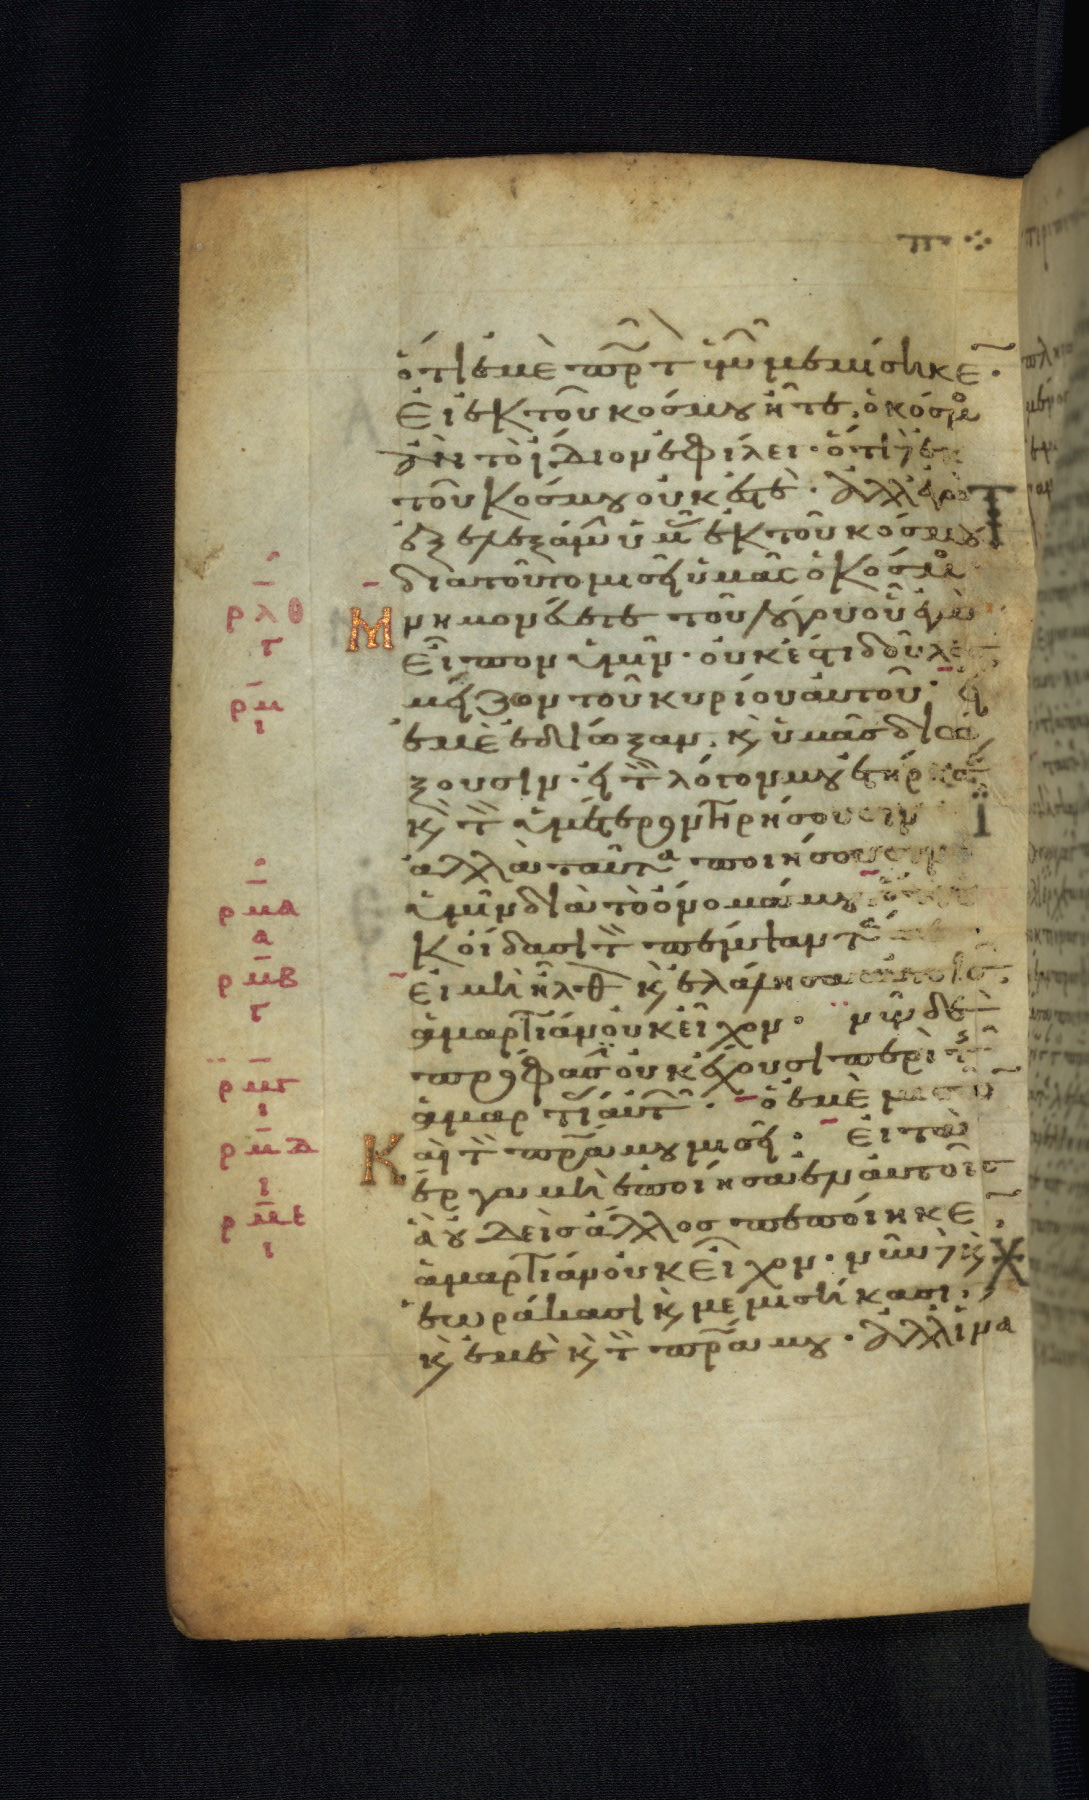 ὅτι ἐμὲ πρτ ὑμ μεμίσηκε
Εἰ ἐκ τοῦ κόσμου ἦτε. ὁ κόσμο
ἂν τὸ ἴδιον ἐφίλει· ὅτι δὲ ἐκ
τοῦ κόσμου οὐκ ἐστὲ· ἀλλ' ἐγὼ
ἐξελεξάμην ὑμ ἐκ τοῦ κόσμου
διατοῦτο μισεῖ ὑμᾶς ὁ κόσμο
ρλθ
γ
Μνημονεύετε τοῦ λόγου οὗ ἐγὼ
Εἶπον ὑμῖν· οὐκ ἔστι δοῦλος
ρμ
ι
μείζων τοῦ κυρίου αὐτοῦ· εἰ
ἐμὲ ἐδίωξαν. κ ὑμᾶς διώ
ξουσιν· εἰ τ λόγον μου ἐτήρησ
κ τ ὑμέτερον τηρήσουσιν
ἀλλὰ ταῦτα ποιήσουσιν
ρμα
α
ὑμῖν διὰ τὸ ὄνομά μου ὅτι οὐ
κ οἴδασι τ πέμψαντ
ρμβ
γ
εἰ μὴ ἦλθ κ ἐλάλησα αὐτοῖς
ἁμαρτίαν οὐκ εἶχον· νῦν δὲ
πρόφασι οὐκ ἔχουσι περὶ τ
ρμγ
ι
ἁμαρτί αὐτ· ὁ ἐμὲ μισῶ
ρμδ
ι
Καὶ τ πρα μου μισεῖ· Εἰ τὰ
ἔργα μὴ ἐποίησα ἐν αὐτοῖς
ρμε
ι
ἃ οὐδεὶς ἄλλος πεποίηκε
ἁμαρτίαν οὐκ Εἶχον· νῦν δὲ κ
ἑωράκασι κ μεμισήκασι·
κ ἐμὲ κ τ πρα μου· ἀλλ' ἵνα